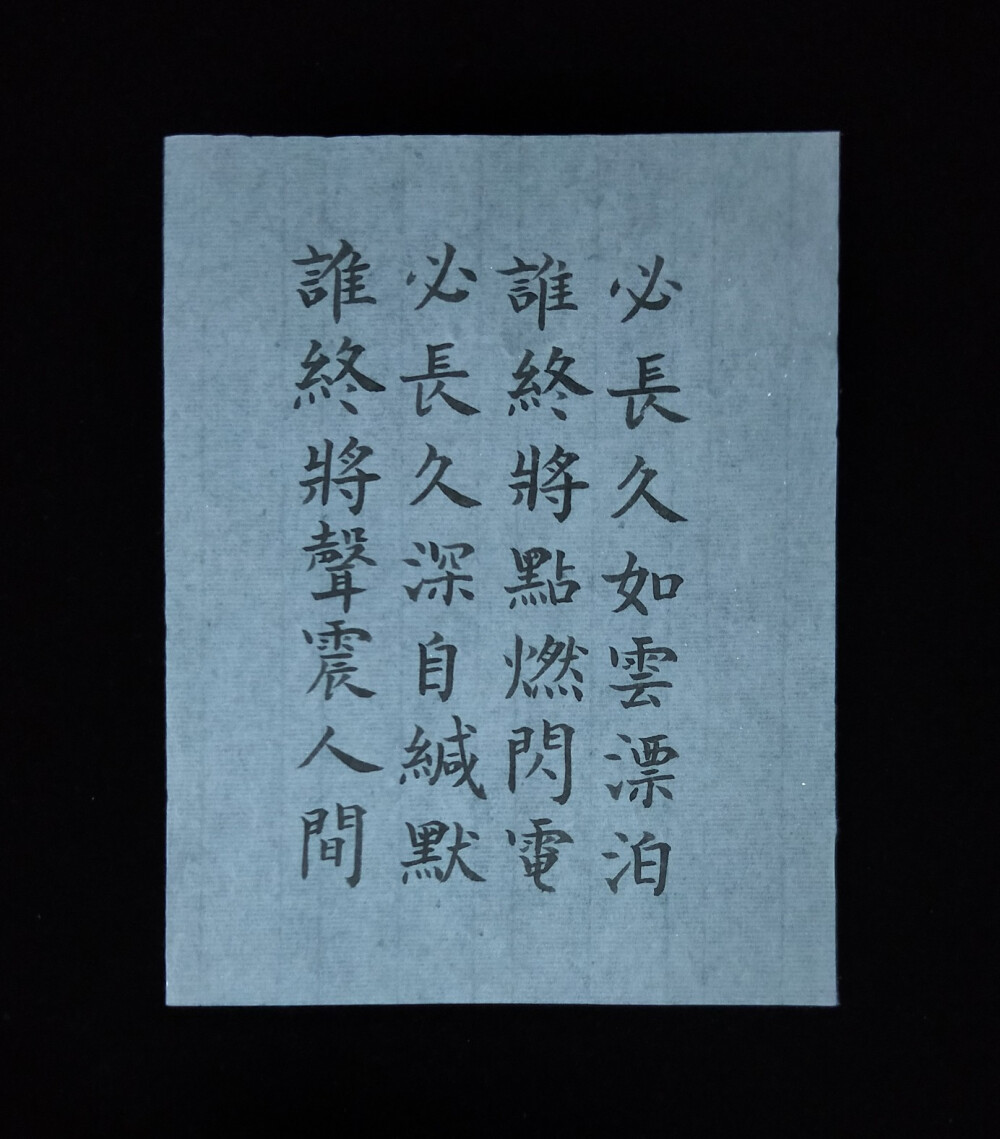 必長久如雲漂泊
誰終將點燃閃電
必長久深自緘默
誰終將聲震人間